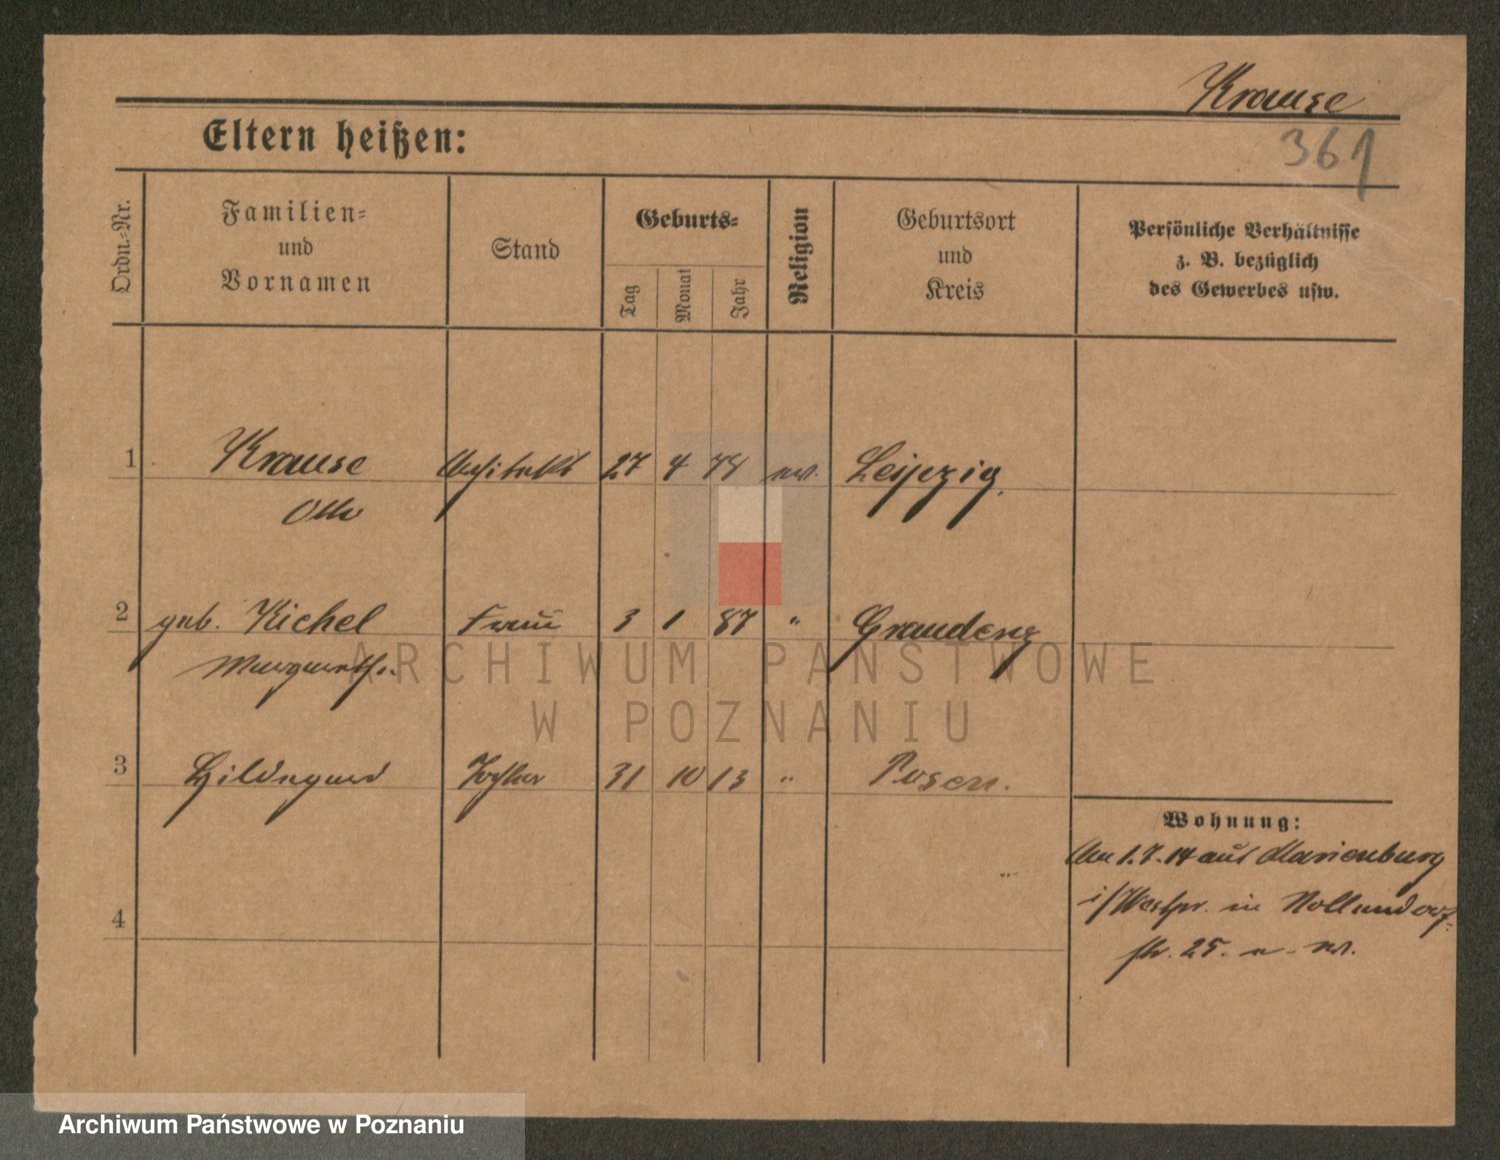 Krause
361
Eltern heißen:
Ordn.-Nr.
Familien-
und
Vornamen
Stand
Geburts-
Tag
Monat
Jahr
Religion
Geburtsort
und
Kreis
Persönliche Verhältnisse
z. B. bezüglich
des Gewerbes usw.
1 Krause Architekt 27 4 78 ev. Leipzig
Otto
2 geb. Kichel Frau 3 1 87 " Graudenz
Margarethe
3 Hildegard Tochter 31 10 13 " Posen.
4
Wohnung:
1.7.14 aus Marienburg
i/Westpr. in Nollendorf-
str. 25.
ARCHIWUM PAŃSTWOWE
W POZNANIU
Archiwum Państwowe w Poznaniu